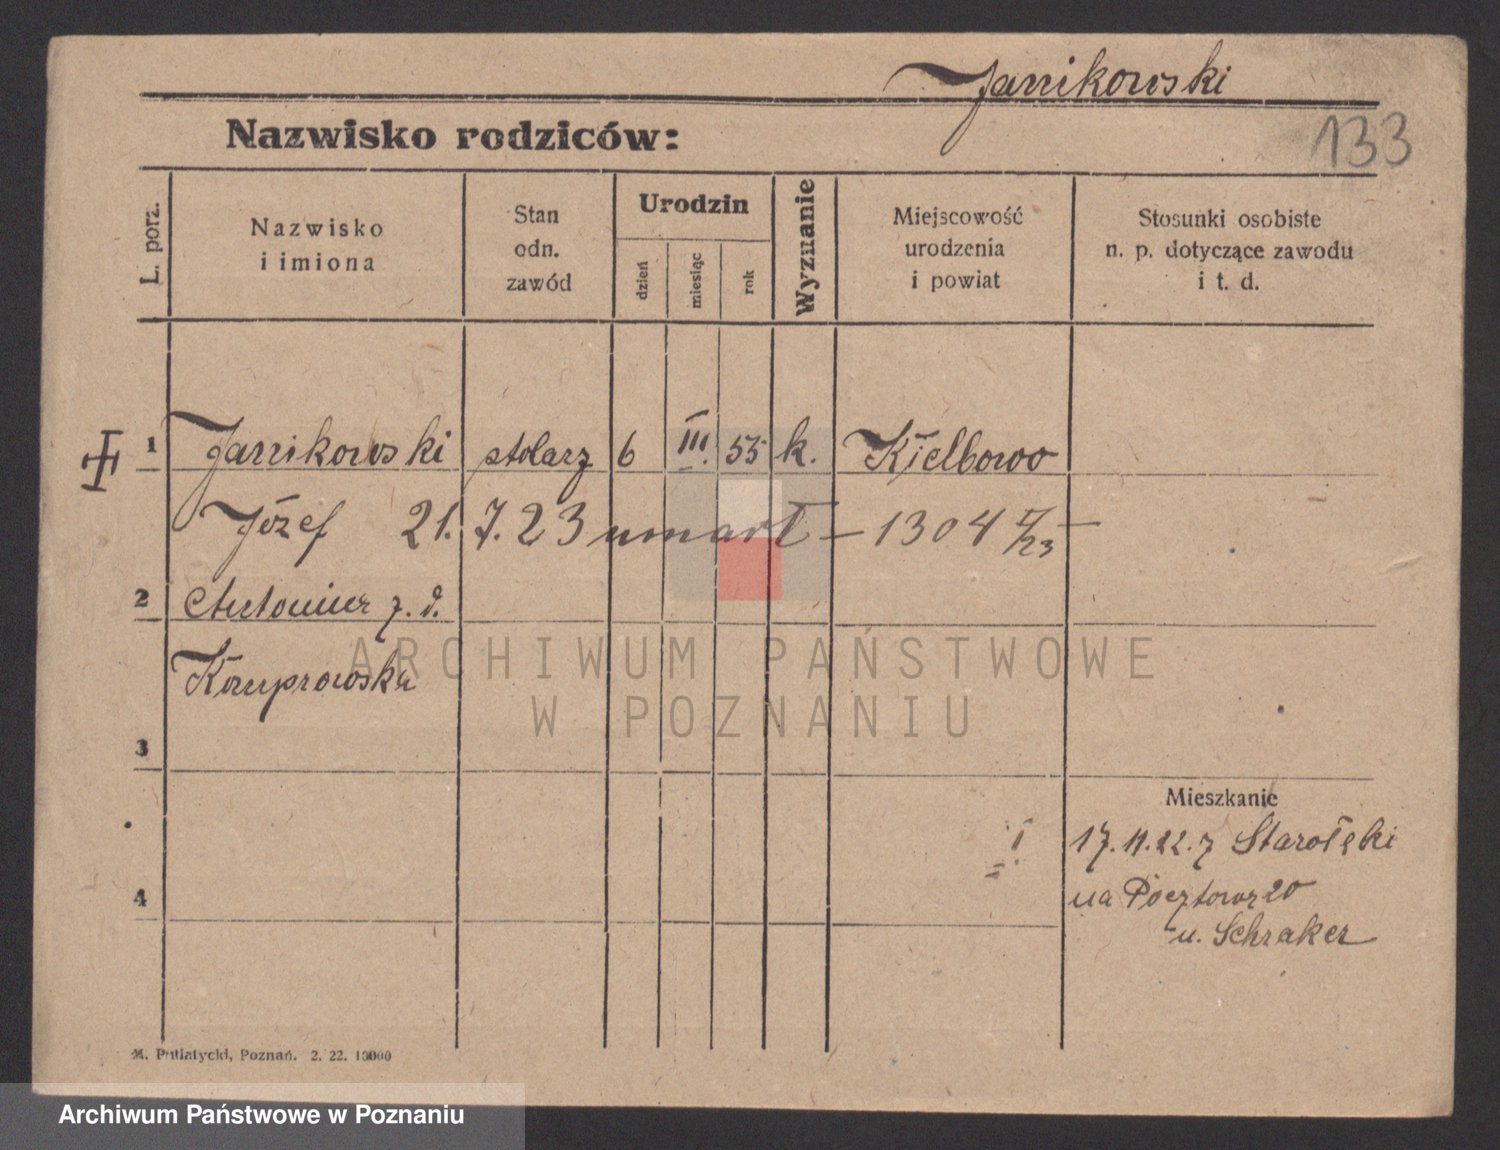 Janikowski
133
Nazwisko rodziców:
L. porz.
Nazwisko
i imiona
Stan
odn.
zawód
Urodzin
dzień
miesiąc
rok
Wyznanie
Miejscowość
urodzenia
i powiat
Stosunki osobiste
n. p. dotyczące zawodu
i t. d.
1 Janikowski stolarz 6 III. 55 k. Kiełbowo
Józef 21.7.23 umarł – 1304 V/23 –
2 z. d.
3
Mieszkanie
I
17.11.22. z Starołęki
4
na 20
u. Schraker
M. Putiatycki, Poznań. 2. 22. 10000
ARCHIWUM PAŃSTWOWE
W POZNANIU
Archiwum Państwowe w Poznaniu